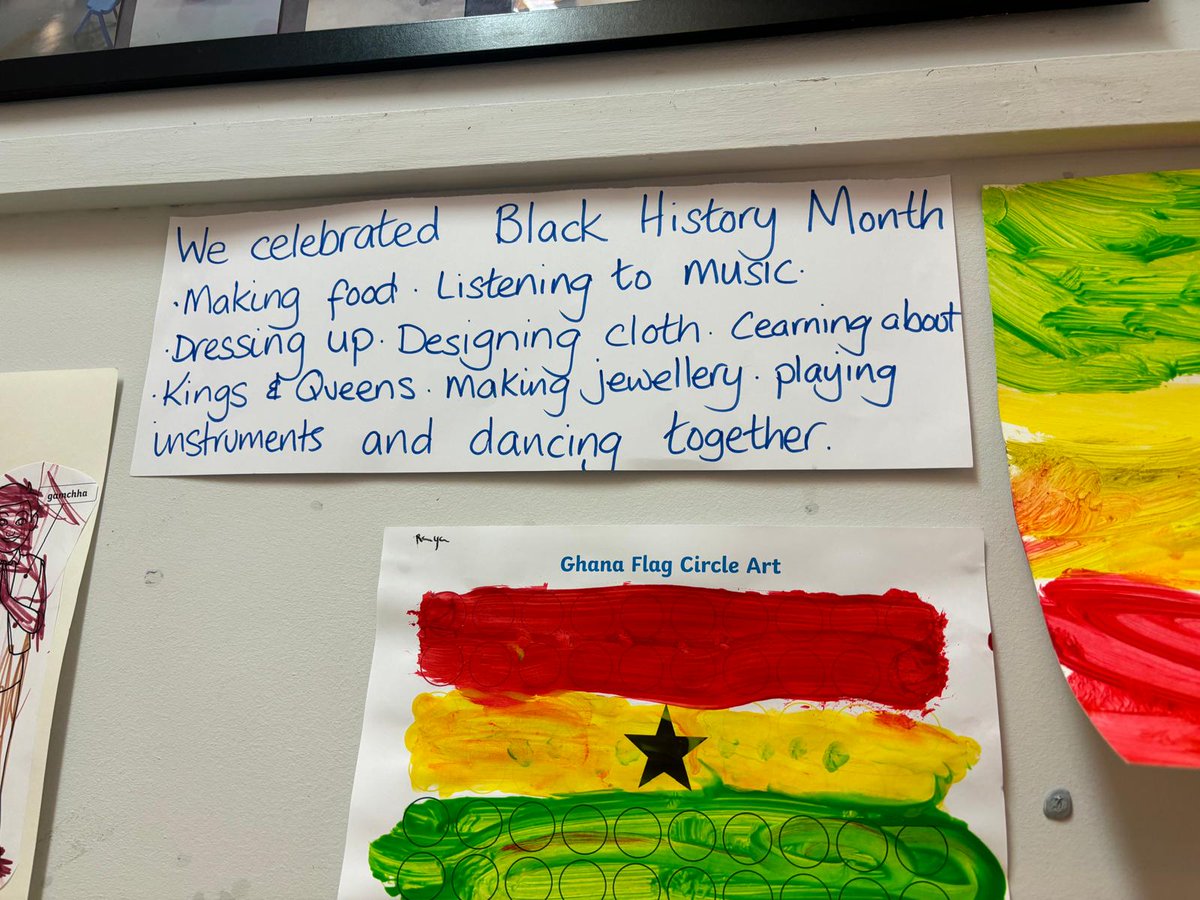 We celebrated Black History Month
·Making food · Listening to music·
·Dressing up · Designing cloth · Learning about
·Kings & Queens · Making jewellery · playing
instruments and dancing together.
gamchha
Ghana Flag Circle Art